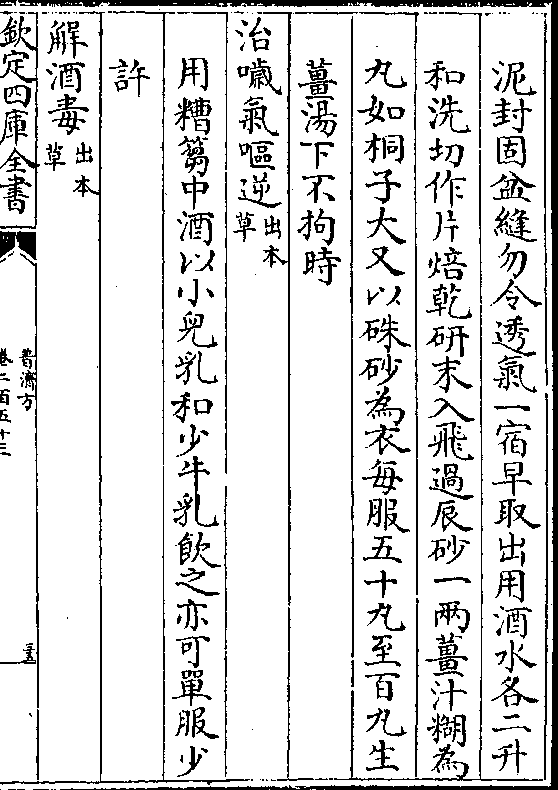 泥封固盆縫勿令透氣一宿早取出用酒水各二升
和洗切作片焙乾研末入飛過辰砂一兩薑汁糊為
丸如桐子大又以硃砂為衣每服五十丸至百丸生
薑湯下不拘時
治噦氣嘔逆出本草
用糟篘中酒以小兒乳和少牛乳飲之亦可單服少
許
解酒毒出本草
欽定四庫全書
普濟方
卷二百五十三